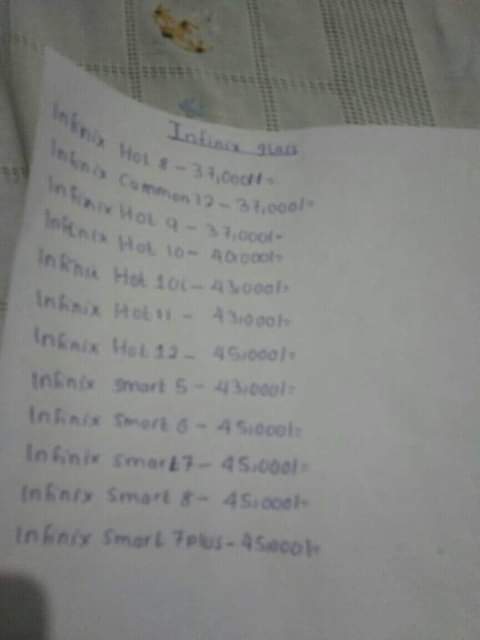 Infinix glass
Infinix Hot 8 - 37,000/=
Infinix Common 12 - 37,000/=
Infinix Hot 9 - 37,000/=
Infinix Hot 10 - 40,000/=
Infinix Hot 10i - 43,000/=
Infinix Hot 11 - 43,000/=
Infinix Hot 12 - 45,000/=
Infinix smart 5 - 43,000/=
Infinix Smart 6 - 45,000/=
Infinix smart 7 - 45,000/=
Infinix Smart 8 - 45,000/=
Infinix Smart 7plus - 45,000/=